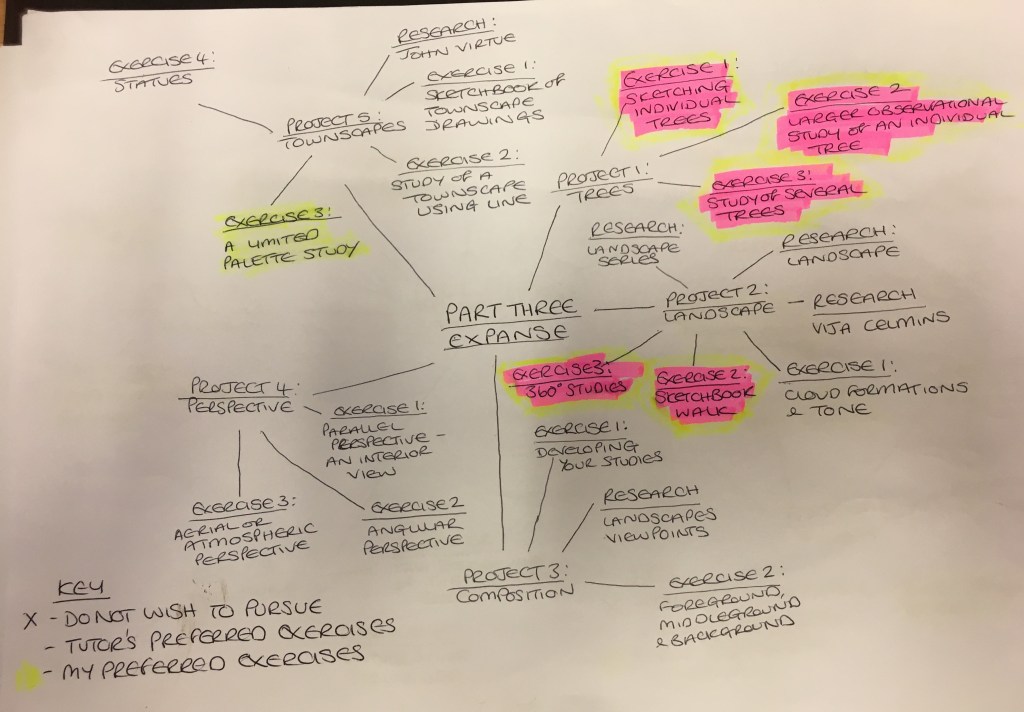 EXERCISE 4:
STATUES
RESEARCH:
JOHN VIRTUE
EXERCISE 1:
SKETCHBOOK OF
TOWNSCAPE
DRAWINGS
PROJECT 5:
TOWNSCAPES
EXERCISE 2:
STUDY OF A
TOWNSCAPE
USING LINE
EXERCISE 3:
A LIMITED
PALETTE STUDY
EXERCISE 1:
SKETCHING
INDIVIDUAL
TREES
EXERCISE 2
LARGER OBSERVATIONAL
STUDY OF AN INDIVIDUAL
TREE
PROJECT 1:
TREES
EXERCISE 3:
STUDY OF SEVERAL
TREES
RESEARCH:
LANDSCAPE
SERIES
RESEARCH:
LANDSCAPE
PROJECT 2:
LANDSCAPE
RESEARCH
VIJA CELMINS
PART THREE
EXPANSE
EXERCISE 3:
360° STUDIES
EXERCISE 2:
SKETCHBOOK
WALK
EXERCISE 1:
CLOUD FORMATIONS
& TONE
PROJECT 4:
PERSPECTIVE
EXERCISE 1:
PARALLEL
PERSPECTIVE -
AN INTERIOR
VIEW
EXERCISE 3:
AERIAL OR
ATMOSPHERIC
PERSPECTIVE
EXERCISE 2
ANGULAR
PERSPECTIVE
EXERCISE 1:
DEVELOPING
YOUR STUDIES
RESEARCH
LANDSCAPES
VIEWPOINTS
PROJECT 3:
COMPOSITION
EXERCISE 2:
FOREGROUND,
MIDDLEGROUND
& BACKGROUND
KEY
X - DO NOT WISH TO PURSUE
- TUTOR'S PREFERRED EXERCISES
- MY PREFERRED EXERCISES